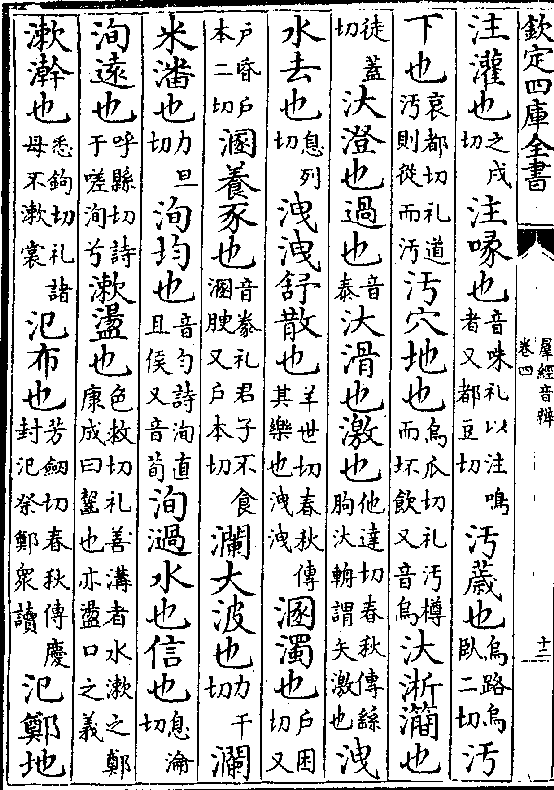 欽定四庫全書
羣經音辨
卷四
十二
注灌也之戍切注喙也音咮礼以注鳴者又都豆切汚薉也烏路烏臥二切汚
下也哀都切礼道汚則從而汚汚穴地也烏瓜切礼汚樽而坏飲又音烏汏淅灡也
徒蓋切汏澄也過也音泰汏滑也激也他達切春秋傳繇朐汏輈謂矢激也洩
水去也息列切洩洩舒散也羊世切春秋傳其樂也洩洩溷濁也戶困切又
戶昏戶本二切溷養豕也音豢礼君子不食溷腴又戶本切瀾大波也力干切瀾
米潘也力旦切洵均也音勻詩洵直且侯又音荀洵過水也信也息淪切
洵遠也呼縣切詩于嗟洵兮漱盪也色救切礼善溝者水漱之鄭康成曰齧也亦盪口之義
漱澣也悉鉤切礼諸母不漱裳氾布也芳劒切春秋傳慶封氾祭鄭衆讀氾鄭地